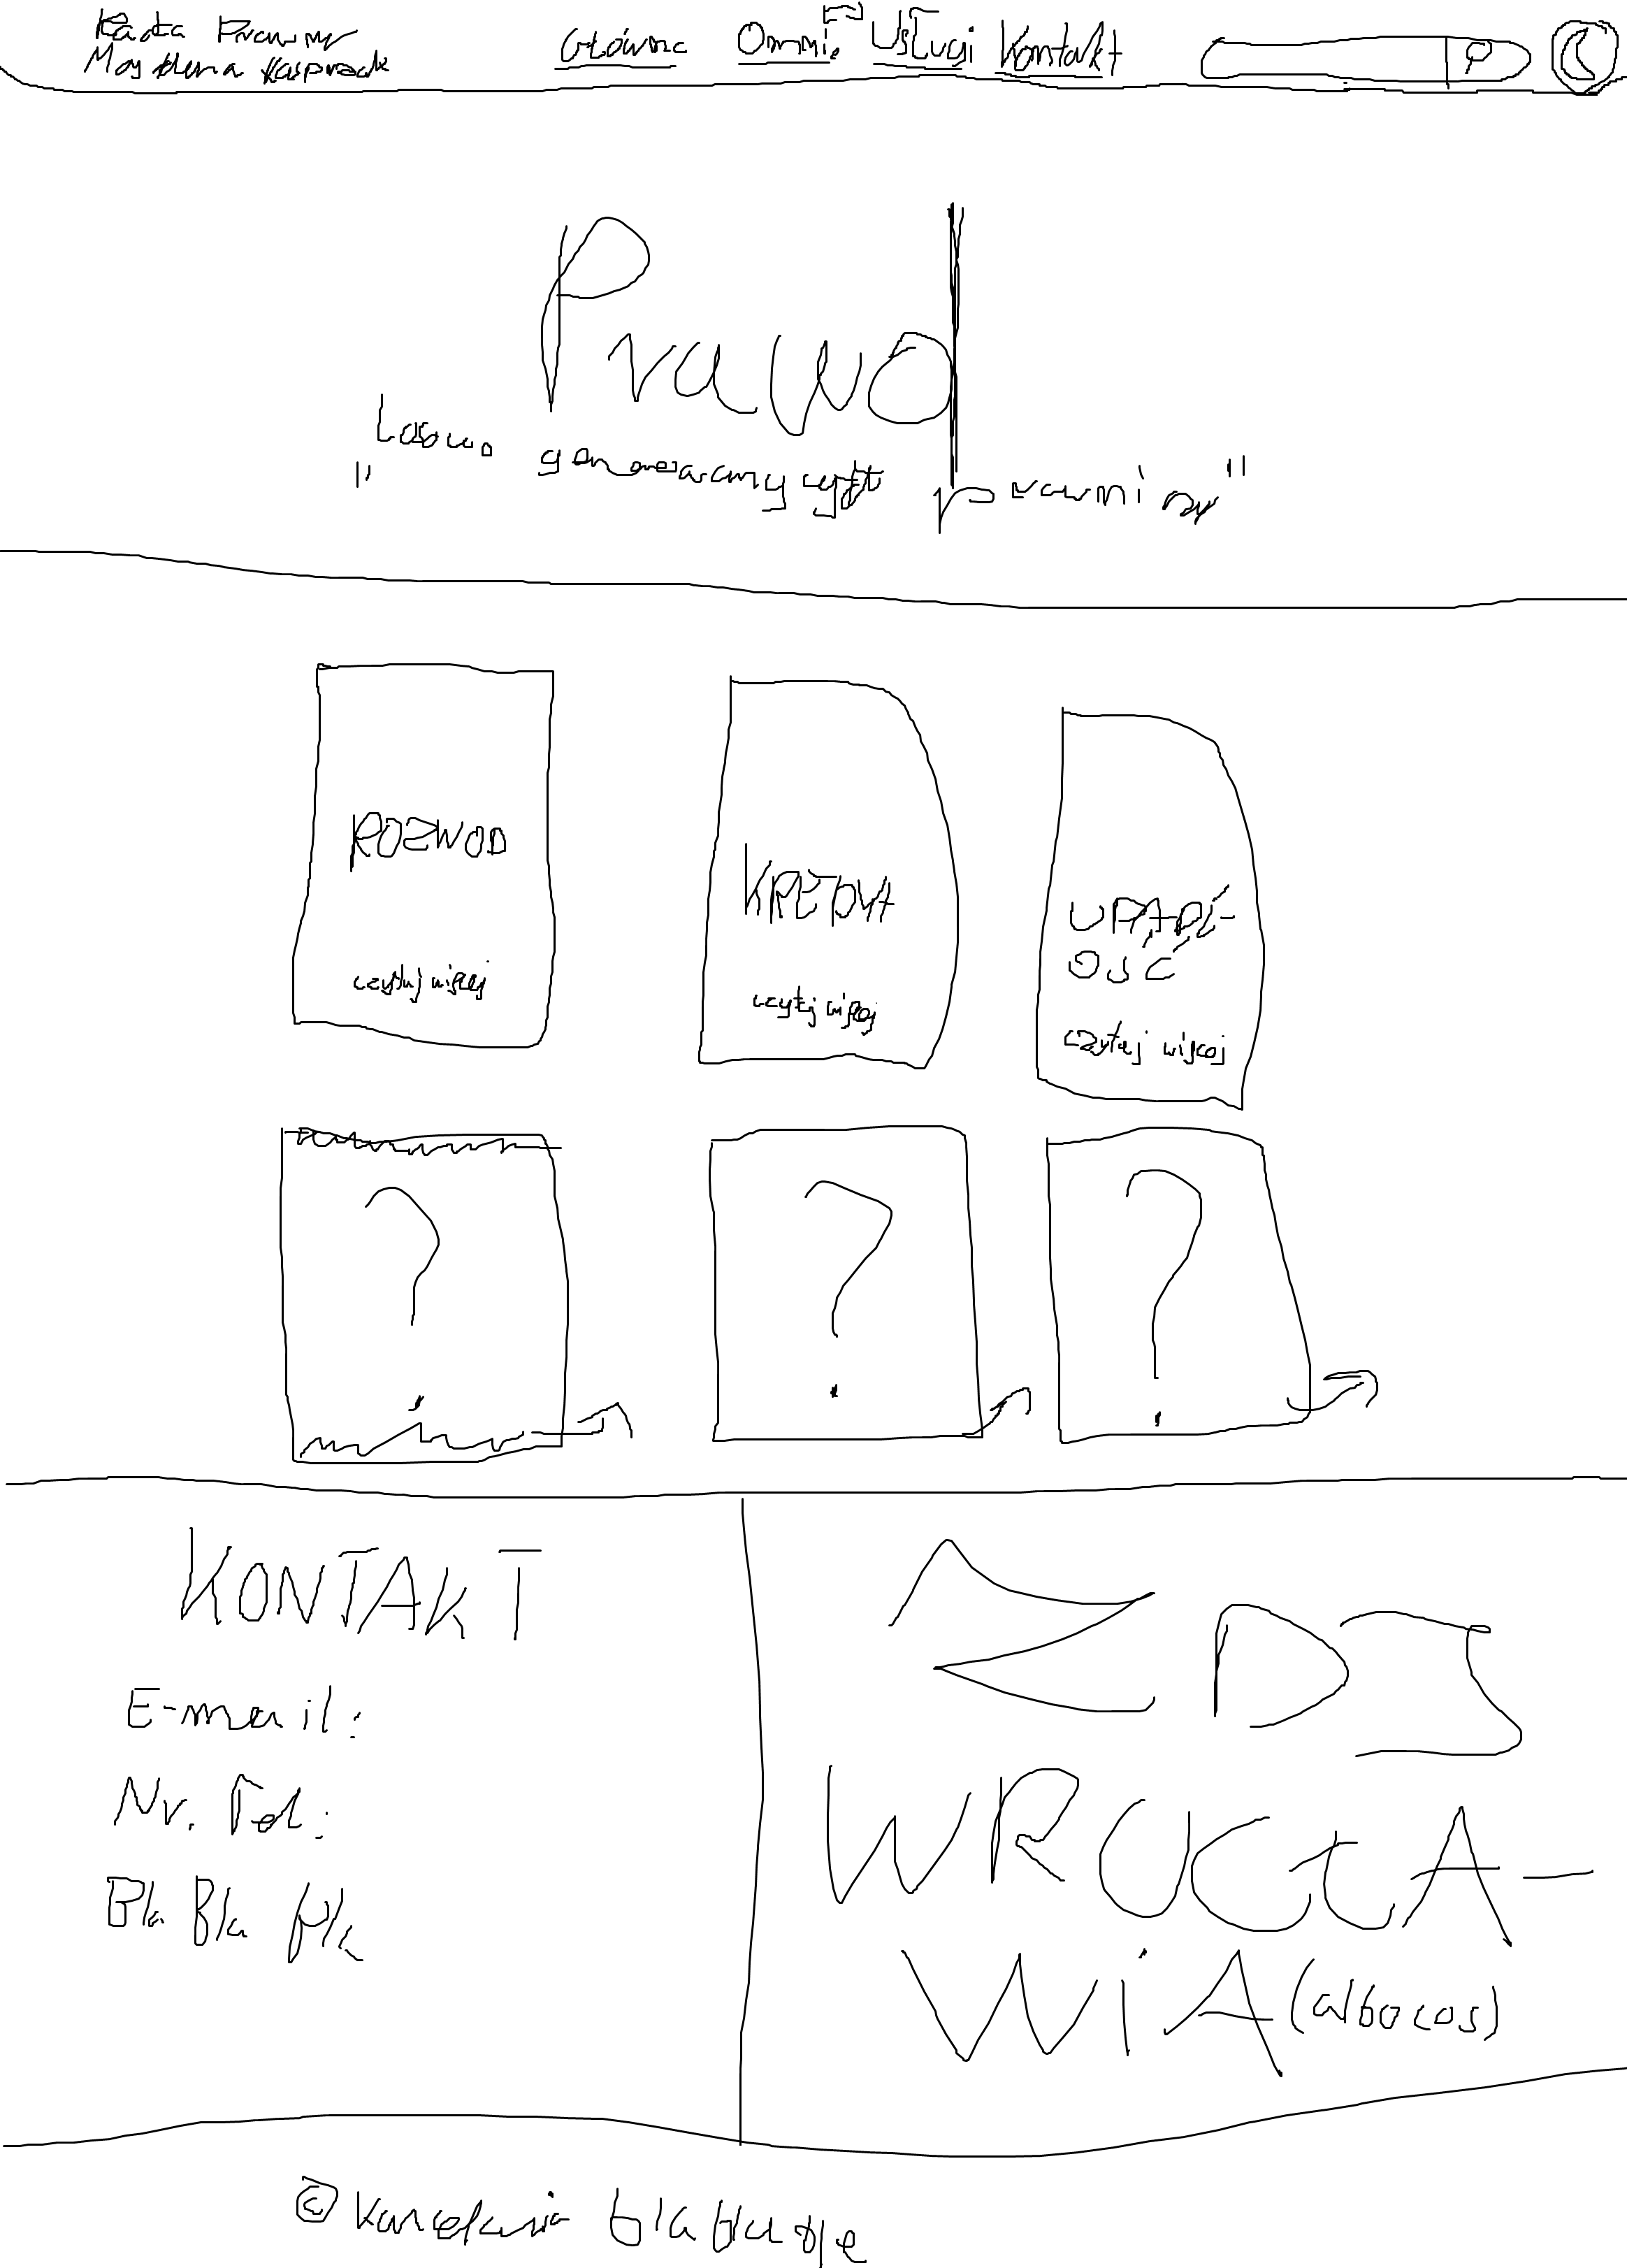 Radca Prawny
Magdalena Kasprzak
Główna O mnie Usługi Kontakt
Prawo
"Losowo generowany cytat prawniczy"
ROZWOD
KREDYT
UPADŁ-
OŚĆ
czytaj więcej
czytej więcej
czytaj więcej
?
?
?
KONTAKT
E-mail:
Nr. Tel:
Bla Bla bla
ZDJ
WROCŁA-
WIA (albo coś)
© Kancelaria bla bla ble